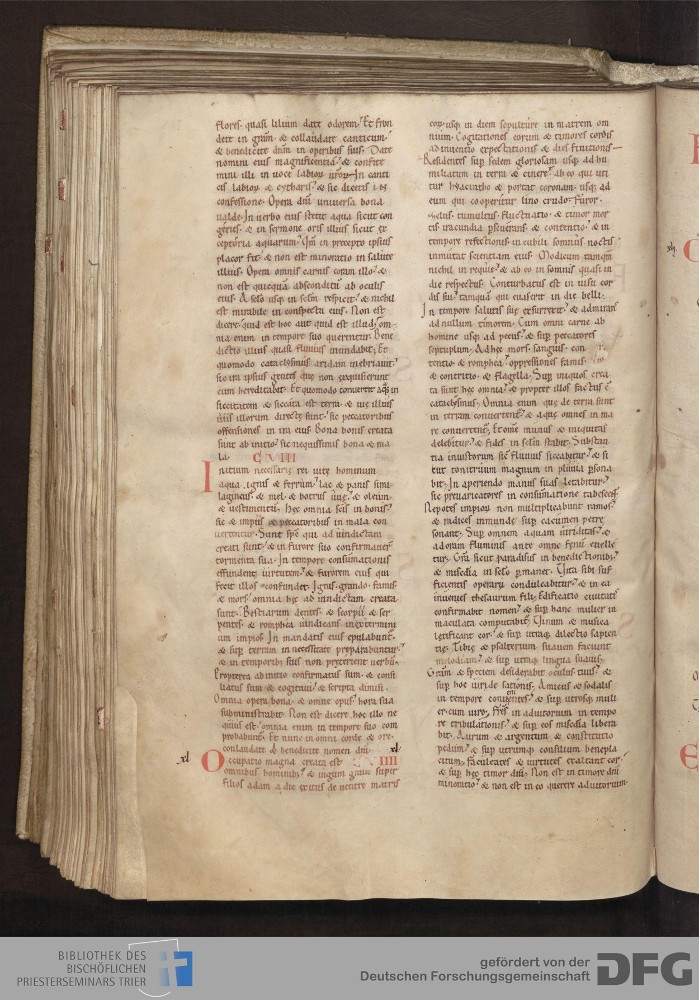 flores quasi lilium date odorem. Et fron
dete in grām & collaudate canticum.
& benedicite dnm in operibus suis. Date
nomini eius magnificentiā. & confite
mini illi in voce labiorum
cis labiorum & cytharis. & sic dicetis in
confessione. Opera dni universa bona
valde. In verbo eius stetit aqua sicut con
geries. & in sermone oris illius sicut ex
ceptoria aquarum. Qm in precepto ipsius
placor fit. & non est minoratio in salute
illius. Opera omnis carnis coram illo. &
non est quicquā absconditū ab oculis
eius. A sclo usq in sclm respicit. & nichil
est mirabile in conspectu eius. Non est
dicere. quid est hoc aut quid est illud. om
nia enim in tempore suo querentur. Bene
dictio illius quasi fluvius inundabit. Et
quomodo cataclysmus aridam inebriavit.
sic ira ipsius gentes que non exquisierunt
eum hereditabit. Et quomodo convertit aqs in
siccitatem & siccata est terra. & vie illius
viis illorum directe sunt. sic peccatoribus
offensiones in ira eius. Bona bonis creata
sunt ab initio. sic nequissimis bona & ma
la. CVIII
Initium necessarie rei vite hominum
aqua. ignis & ferrum. lac & panis simi
lagineus & mel. & botrus uve. & oleum.
& vestimentū. Hec omnia scis in bonis.
sic & impiis & peccatoribus in mala con
vertentur. Sunt sps qui ad vindictam
creati sunt. & in furore suo confirmaverunt
tormenta sua. In tempore consumationis
effundent virtutem. & furorem eius qui
fecit illos confundet. Ignis. grando. famis
& mors. omnia hec ad vindictam creata
sunt. Bestiarum dentes. & scorpii & ser
pentes. & romphea vindicans in exterminiū
um impios. In mandatis eius epulabunt.
& sup terram in necessitate preparabuntur.
& in temporib suis non preterient verbū.
Propterea ab initio confirmatus sum. & consi
liatus sum & cogitavi. & scripta dimisi.
Omnia opera dni bona. & omne opus hora sua
subministrabit. Non est dicere. hoc illo ne
quius est. omnia enim in tempore suo com
probabunt. Et nunc in omni corde & ore.
conlaudate & benedicite nomen dni.
xl Occupatio magna creata est xl IIII
omnibus hominibus. & iugum grave super
filios adam a die exitus de ventre matris
eorum usq in diem sepulture in matrem om
nium. Cogitationes eorum & timores cordis
adinventio expectationis & dies finitionis
Residentes sup sedem gloriosam usq ad hu
miliatum in terra & cinere. ab eo qui uti
tur hyacintho & portat coronam. usq ad
eum qui cooperitur lino crudo. Furor.
zelus. tumultus. fluctuatio. & timor mor
tis. iracundia pseverans. & contentio. & in
tempore refectionis in cubili somnus noctis
inmutat scientiam eius. Modicum tamqm
nichil in requie. & ab eo in somnis quasi in
die respectus. Conturbatus est in visu cor
dis sui. tamquā qui evaserit in die belli.
In tempore salutis sue exsurrexit. & admirans
ad nullum timorem. Cum omni carne ab
homine usq ad pecus. & sup peccatores
septuplum. Adhec mors. sanguis. con
tentio & romphea. oppressiones famis
& contritio. & flagella. Sup iniquos crea
ta sunt hec omnia. & propter illos factus ē
cataclysmus. Omnia enim que de terra sunt
in terram convertentur. & aque omnes in ma
re convertentur. Et omē munus & iniquitas
delebitur. & fides in sclm stabit. Substan
tia iniustorum sic fluvius siccabitur. & si
cut tonitruum magnum in pluvia psona
bit. In aperiendo manus suas letabitur.
sic prevaricatores in consumatione tabescent
Nepotes impiorum non multiplicabunt ramos.
& radices inmunde sup cacumen petre
sonant. Sup omnem aquam viriditas. &
adoram fluminis ante omne fenū evelle
tur. Grā sicut paradisus in benedictionibus.
& misedia in sclo pmanet. Vita sibi suf
ficientis operarii condulcabitur. & in ea
invenies thesaurum. Filii & edificatio civitatis
confirmabit nomen. & sup hanc mulier in
maculata computabit. Vinum & musica
letificant cor. & sup utraq dilectio sapien
tie. Tibie & psalterium suavem faciunt
melodiam. & sup utraq lingua suavis.
Grām & speciem desiderabit oculus tuus. &
sup hoc viride sationis. Amicus & sodalis
in tempore convenientes. & sup utrosq muli
er cum viro. Frēs in adiutorium in tempo
re tribulationis. & sup eos misedia libera
bit. Aurum & argentum & constitutio
pedum. & sup utrumq consilium benepla
citum. Facultates & virtutes exaltant cor
& sup hec timor dni. Non est in timore dni
minoratio. & non est in eo querere adiutorium.
BIBLIOTHEK DES
BISCHÖFLICHEN
PRIESTERSEMINARS TRIER
gefördert von der
Deutschen Forschungsgemeinschaft DFG